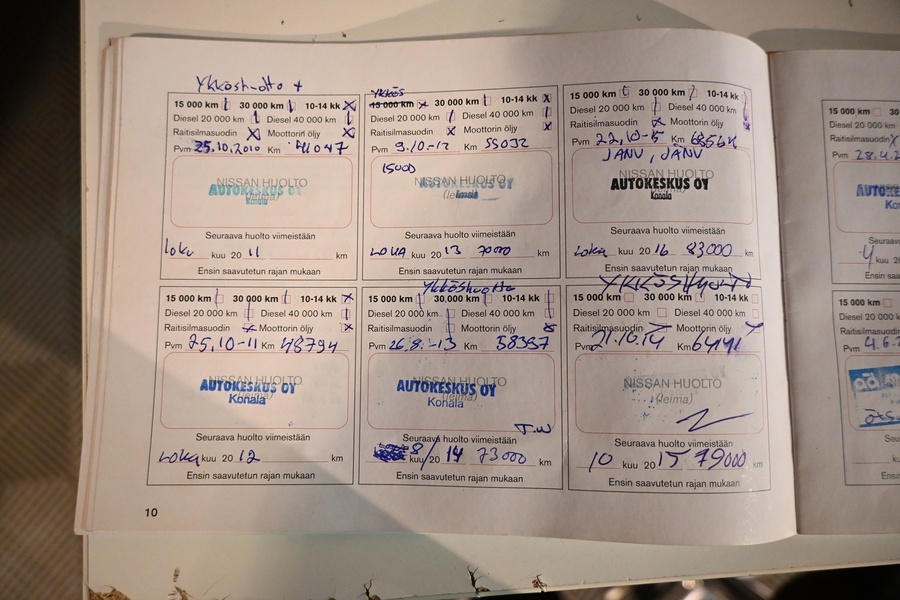 Ykköshuolto +
15 000 km 30 000 km 10-14 kk
Diesel 20 000 km Diesel 40 000 km
Raitisilmasuodin Moottorin öljy
Pvm 25.10.2010 Km 41047
NISSAN HUOLTO
(leima)
AUTOKESKUS OY
Konala
Seuraava huolto viimeistään
loka kuu 20 11 km
Ensin saavutetun rajan mukaan
Ykkös
15 000 km 30 000 km 10-14 kk
Diesel 20 000 km Diesel 40 000 km
Raitisilmasuodin Moottorin öljy
Pvm 9.10-12 Km 55032
15000
NISSAN HUOLTO
(leima)
AUTOKESKUS OY
Konala
Seuraava huolto viimeistään
LOKA kuu 20 13 70000 km
Ensin saavutetun rajan mukaan
15 000 km 30 000 km 10-14 kk
Diesel 20 000 km Diesel 40 000 km
Raitisilmasuodin Moottorin öljy
Pvm 22.10-15 Km
JANV, JÄNV
NISSAN HUOLTO
(leima)
AUTOKESKUS OY
Konala
Seuraava huolto viimeistään
Loka kuu 20 16 83000 km
Ensin saavutetun rajan mukaan
15 000 km 30 000 km 10-14 kk
Diesel 20 000 km Diesel 40 000 km
Raitisilmasuodin Moottorin öljy
Pvm 25.10-11 Km 48794
NISSAN HUOLTO
(leima)
AUTOKESKUS OY
Konala
Seuraava huolto viimeistään
Loka kuu 20 12 km
Ensin saavutetun rajan mukaan
Ykköshuolto
15 000 km 30 000 km 10-14 kk
Diesel 20 000 km Diesel 40 000 km
Raitisilmasuodin Moottorin öljy
Pvm 26.8.-13 Km 58397
NISSAN HUOLTO
(leima)
AUTOKESKUS OY
Konala
T.W
Seuraava huolto viimeistään
8 kuu 20 14 73000 km
Ensin saavutetun rajan mukaan
YKKÖSHUOLTO
15 000 km 30 000 km 10-14 kk
Diesel 20 000 km Diesel 40 000 km
Raitisilmasuodin Moottorin öljy
Pvm 21.10.14 Km 64141
NISSAN HUOLTO
(leima)
Seuraava huolto viimeistään
10 kuu 20 15 79000 km
Ensin saavutetun rajan mukaan
10
15 000 km
Diesel 20 000
Raitisilmasuodin
Pvm 28.4.2
Ensin saa
15 000 km
Diesel 20 000 k
Raitisilmasuodin
Pvm 4.6.
Ensin saa